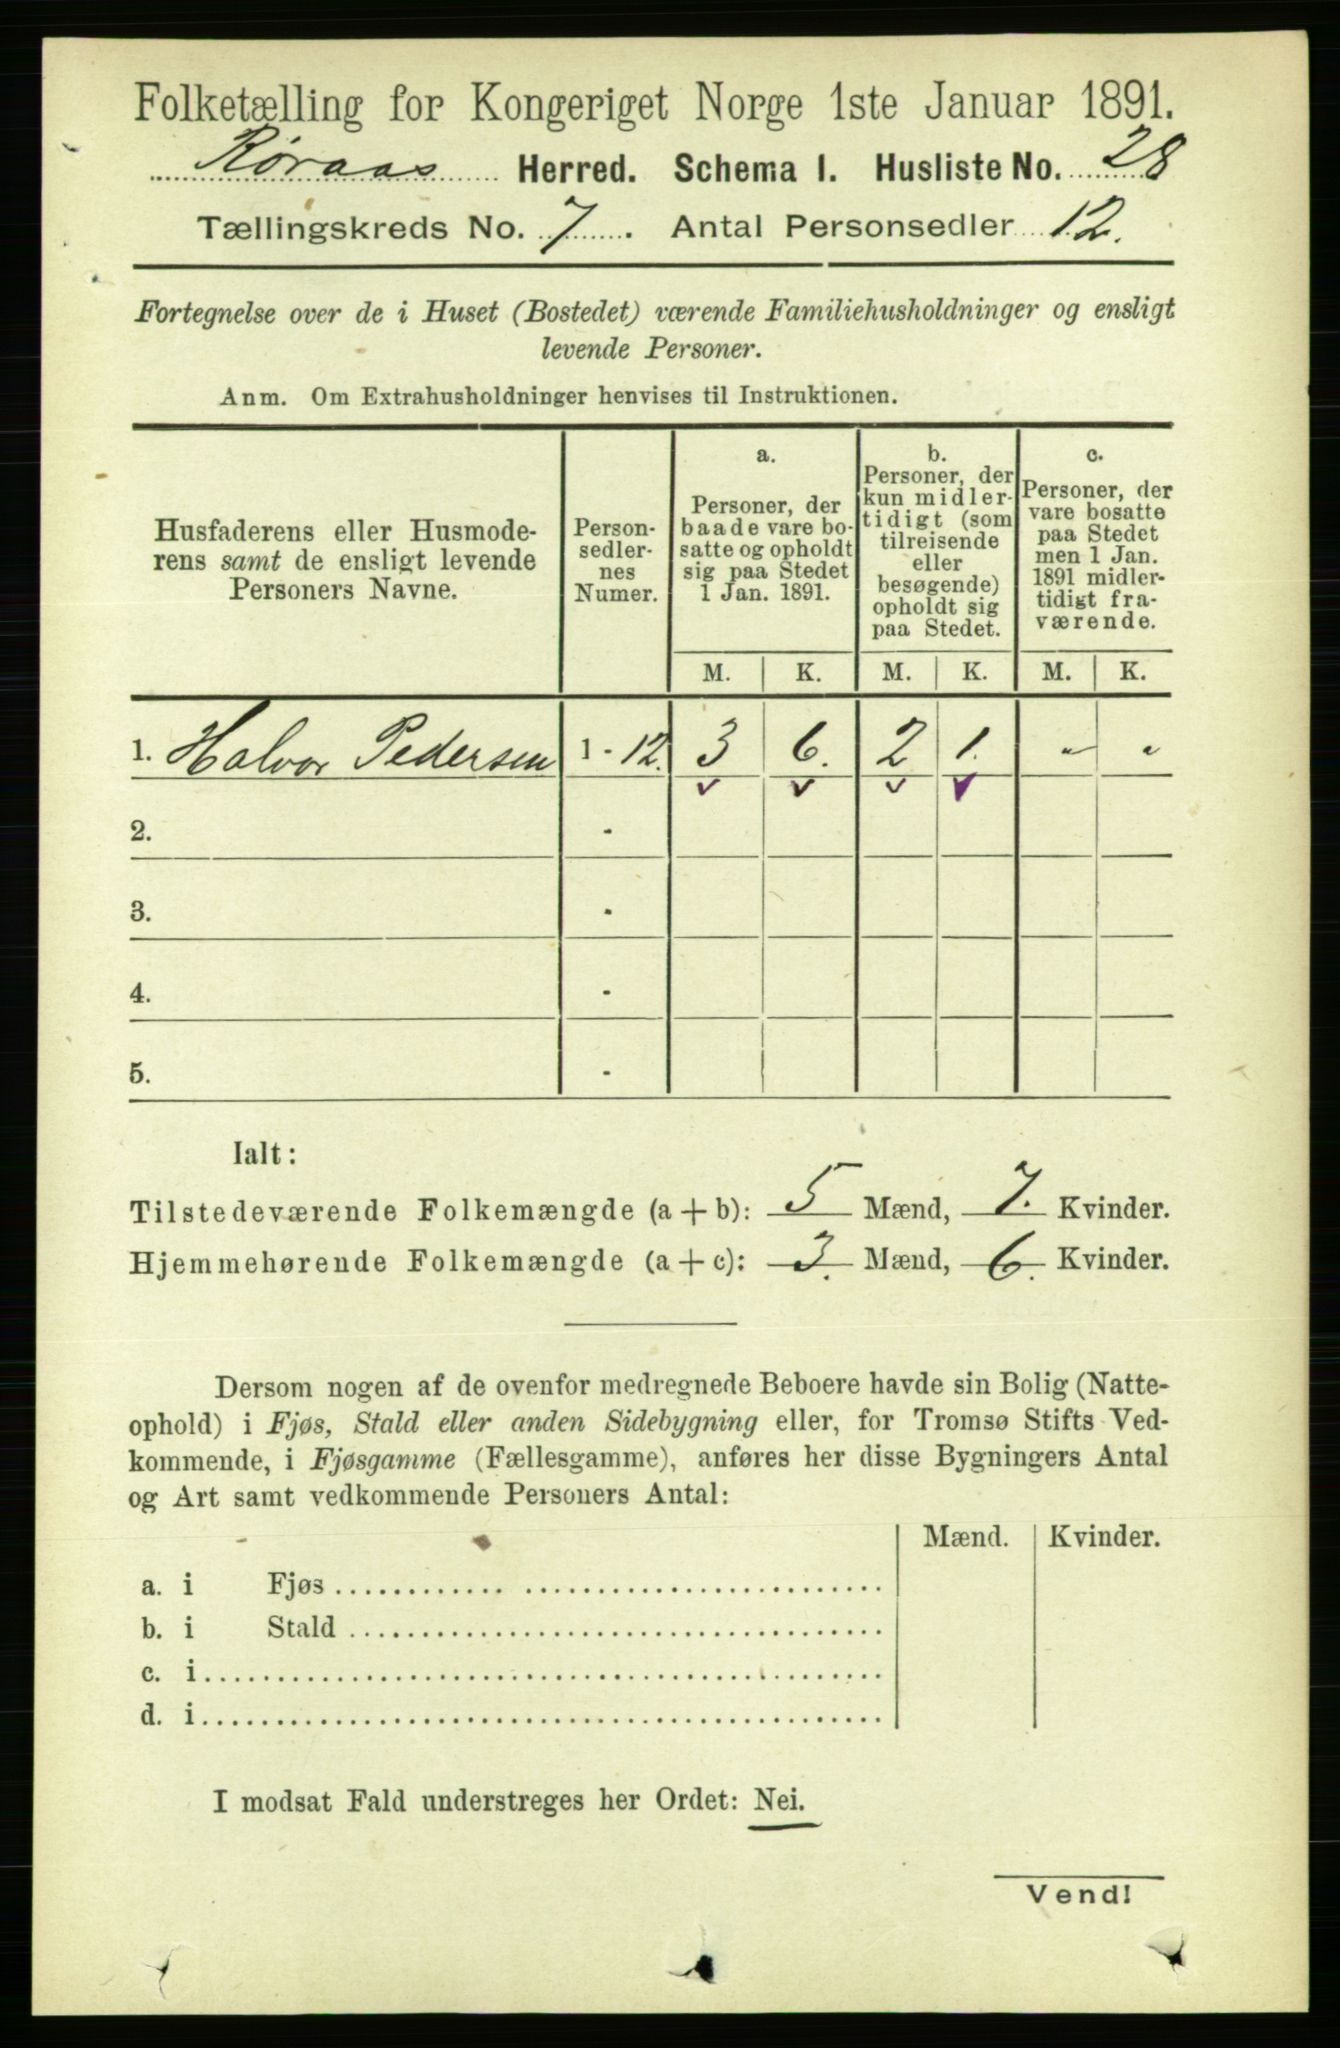 Folketælling for Kongeriget Norge 1ste Januar 1891.
Røraas Herred. Schema 1. Husliste No. 28
Tællingskreds No. 7. Antal Personsedler 12.
Fortegnelse over de i Huset (Bostedet) værende Familiehusholdninger og ensligt
levende Personer.
Anm. Om Extrahusholdninger henvises til Instruktionen.
Husfaderens eller Husmode-
rens samt de ensligt levende
Personers Navne.
Person-
sedler-
nes
Numer.
a.
Personer, der
baade vare bo-
satte og opholdt
sig paa Stedet
1 Jan. 1891.
b.
Personer, der
kun midler-
tidigt (som
tilreisende
eller
besøgende)
opholdt sig
paa Stedet.
c.
Personer, der
vare bosatte
paa Stedet
men 1 Jan.
1891 midler-
tidigt fra-
værende.
M. K. M. K. M. K.
1. Halvor Pedersen 1 - 12. 3 6. 2 1. " "
2. -
3. -
4. -
5. -
Ialt:
Tilstedeværende Folkemængde (a + b): 5 Mænd, 7. Kvinder.
Hjemmehørende Folkemængde (a + c): 3. Mænd, 6. Kvinder.
Dersom nogen af de ovenfor medregnede Beboere havde sin Bolig (Natte-
ophold) i Fjøs, Stald eller anden Sidebygning eller, for Tromsø Stifts Ved-
kommende, i Fjøsgamme (Fællesgamme), anføres her disse Bygningers Antal
og Art samt vedkommende Personers Antal:
Mænd. Kvinder.
a. i Fjøs
b. i Stald
c. i
d. i
I modsat Fald understreges her Ordet: Nei.
Vend!